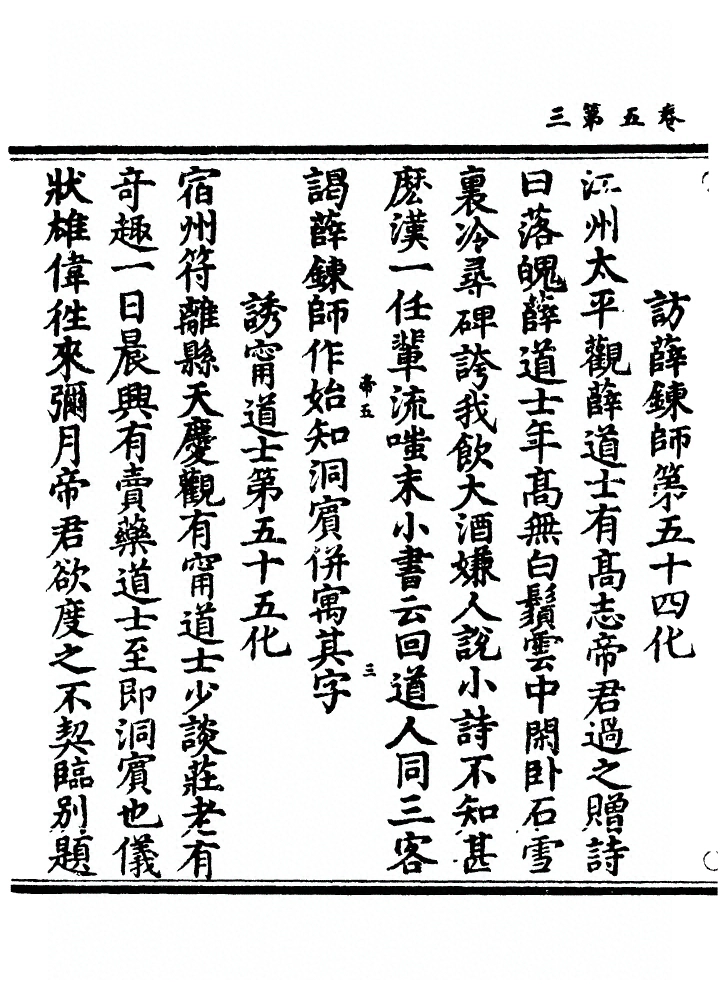 卷五第三
訪薛鍊師第五十四化
江州太平觀薛道士有高志帝君過之贈詩
曰落魄薛道士年高無白鬚雲中閑卧石雪
裏冷尋碑誇我飲大酒嫌人說小詩不知甚
麽漢一任輩流嗤末小書云回道人同三客
帝五
三
謁薛鍊師作始知洞賓併寓其字
誘甯道士第五十五化
宿州符離縣天慶觀有甯道士少談莊老有
奇趣一日晨興有賣藥道士至即洞賓也儀
狀雄偉徃來彌月帝君欲度之不契臨別題